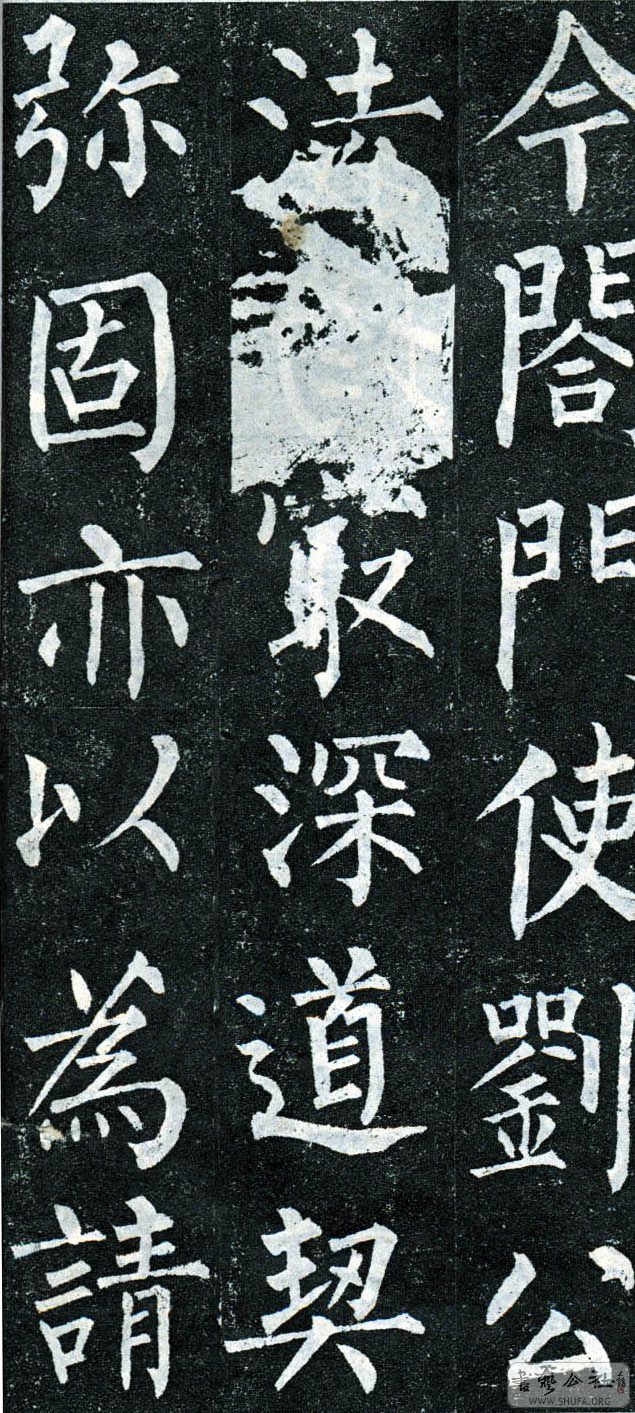 今閤門使劉公
法寂深道契
弥固亦以為請
書藝公社
WWW.SHUFA.ORG